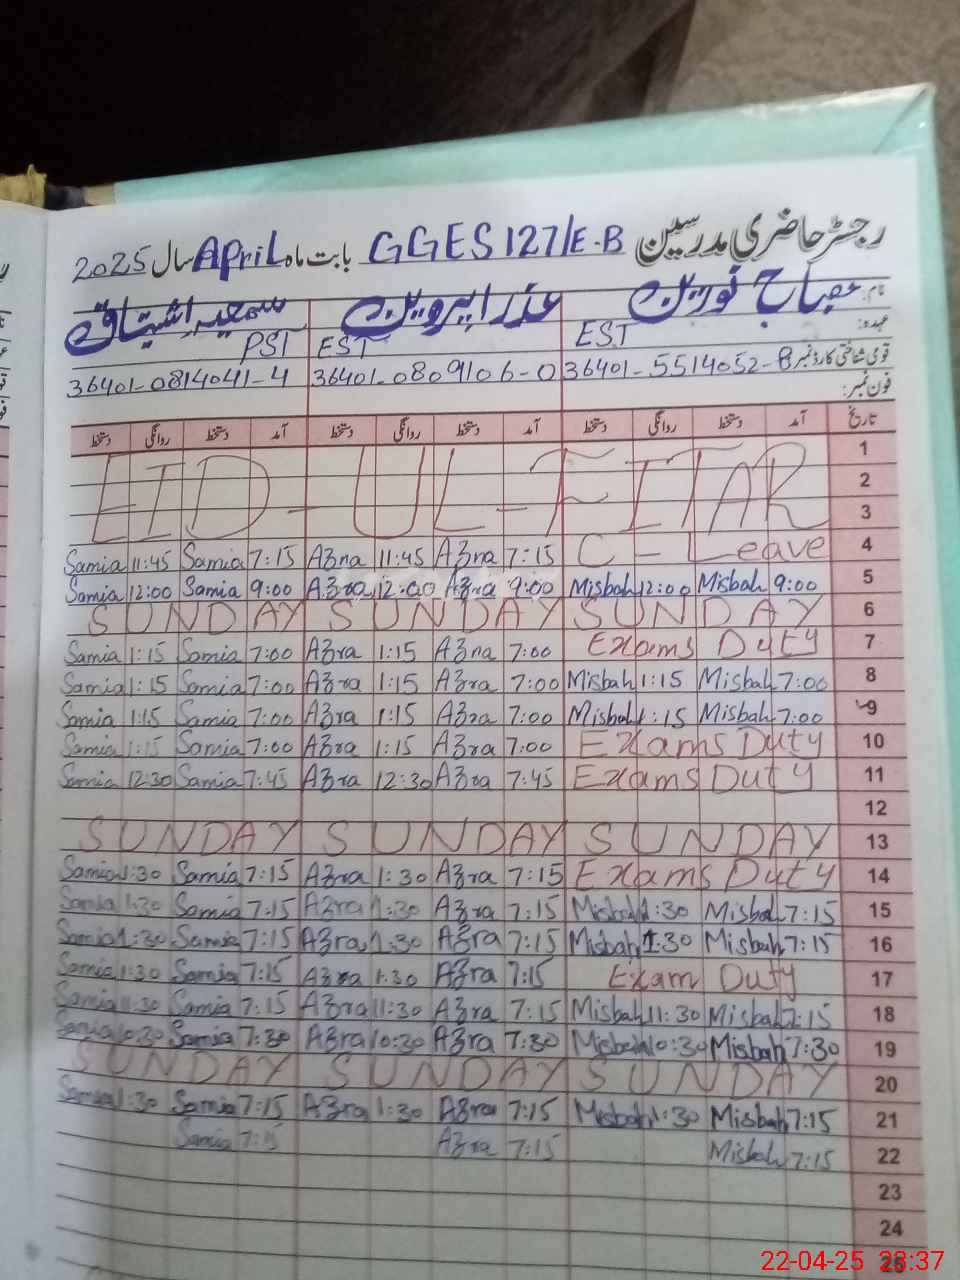 رجسٹر حاضری مدرسین GGES 127/E-B بابت ماہ April سال 2025
نام: مصباح نورین عذرا پروین سمعیہ اشتیاق
عہدہ: EST EST PST
قومی شناختی کارڈ نمبر 36401-5514052-8 36401-0809106-0 36401-0814041-4
فون نمبر:
تاریخ آمد دستخط روانگی دستخط آمد دستخط روانگی دستخط آمد دستخط روانگی دستخط
EID-UL-FITAR 1
2
3
Samia 11:45 Samia 7:15 Azra 11:45 Azra 7:15 C-Leave 4
Samia 12:00 Samia 9:00 Azra 12:00 Azra 9:00 Misbah 12:00 Misbah 9:00 5
SUNDAY SUNDAY SUNDAY 6
Samia 1:15 Samia 7:00 Azra 1:15 Azra 7:00 Exams Duty 7
Samia 1:15 Samia 7:00 Azra 1:15 Azra 7:00 Misbah 1:15 Misbah 7:00 8
Samia 1:15 Samia 7:00 Azra 1:15 Azra 7:00 Misbah 1:15 Misbah 7:00 9
Samia 1:15 Samia 7:00 Azra 1:15 Azra 7:00 Exams Duty 10
Samia 12:30 Samia 7:45 Azra 12:30 Azra 7:45 Exams Duty 11
12
SUNDAY SUNDAY SUNDAY 13
Samia 1:30 Samia 7:15 Azra 1:30 Azra 7:15 Exams Duty 14
Samia 1:30 Samia 7:15 Azra 1:30 Azra 7:15 Misbah 1:30 Misbah 7:15 15
Samia 1:30 Samia 7:15 Azra 1:30 Azra 7:15 Misbah 1:30 Misbah 7:15 16
Samia 1:30 Samia 7:15 Azra 1:30 Azra 7:15 Exam Duty 17
Samia 11:30 Samia 7:15 Azra 11:30 Azra 7:15 Misbah 11:30 Misbah 7:15 18
Samia 10:30 Samia 7:30 Azra 10:30 Azra 7:30 Misbah 10:30 Misbah 7:30 19
SUNDAY SUNDAY SUNDAY 20
Samia 1:30 Samia 7:15 Azra 1:30 Azra 7:15 Misbah 1:30 Misbah 7:15 21
Samia 7:15 Azra 7:15 Misbah 7:15 22
23
24
25
22-04-25 23:37